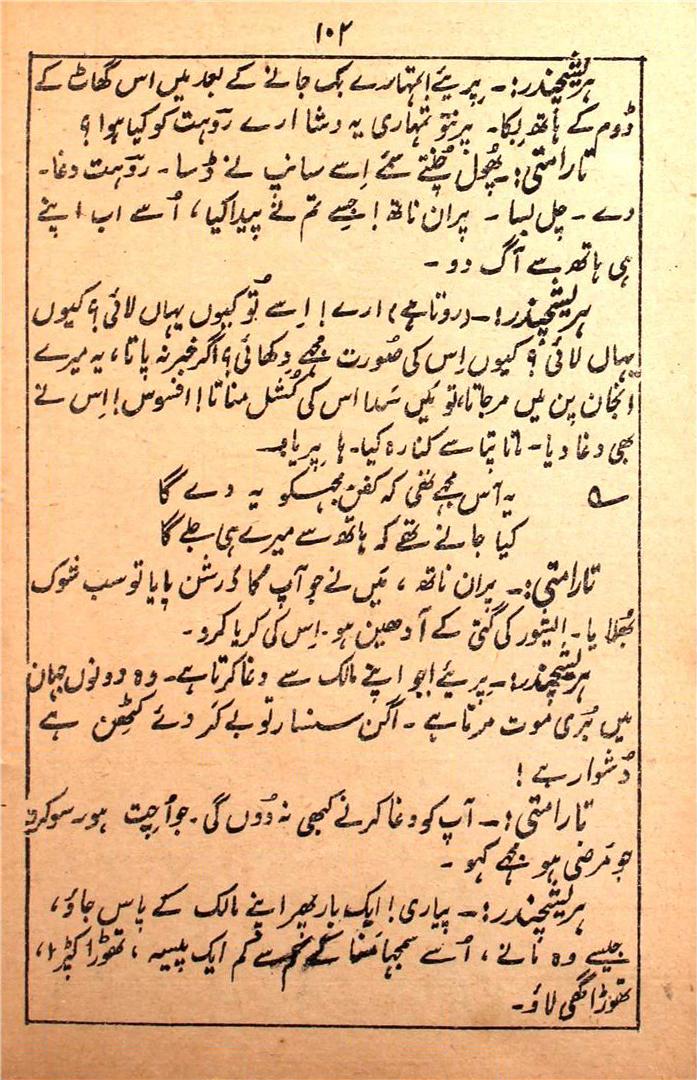 ۱۰۲
ہریشچندر:۔ پریئے! تمہارے بک جانے کے بعد میں اس گھاٹ کے
ڈوم کے ہاتھ بِکا۔ پرنتو تمہاری یہ دشا ارے روہت کو کیا ہوا؟
تارامتی:۔ پھُول چُنتے سمے اِسے سانپ نے ڈسا۔ روہت دغا۔
دے۔ چل بسا۔ پران ناتھ! جسے تم نے پیدا کیا، اُسے اب اپنے
ہی ہاتھ سے آگ دو۔
ہریشچندر:۔ (روتا ہے) ارے! اِسے تُو کیوں یہاں لائی؟ کیوں
یہاں لائی؟ کیوں اِس کی صُورت مجھے دِکھائی؟ اگر خبر نہ پاتا، یہ میرے
انجان پن میں مر جاتا، تو میں سَدا اس کی کُشل مناتا! افسوس! اِس نے
بھی دغا دیا۔ ماتا پتا سے کنارہ کیا۔ ہا پریا۔
یہ آس مجھے تھی کہ کفن مجھکو یہ دے گا
کیا جانے تھے کہ ہاتھ سے میرے ہی جلے گا
تارامتی:۔ پران ناتھ، میں نے جو آپ کا دَرشن پایا تو سب شوک
بھُلایا۔ ایشور کی گتی کے آدھین ہو۔ اِس کی کریا کرو۔
ہریشچندر:۔ پریئے! جو اپنے مالک سے دغا کرتا ہے۔ وہ دونوں جہان
میں بُری موت مرتا ہے۔ اگن سنسار تو بے کر دئے کٹھِن ہے
دُشوار ہے!
تارامتی:۔ آپ کو دغا کرنے کبھی نہ دُوں گی۔ جو اُچت ہو، سو کرو
جو مَرضی ہو مجھے کہو۔
ہریشچندر:۔ پیاری! ایک بار پھر اپنے مالک کے پاس جاؤ،
جیسے وہ مانے، اُسے سمجھا مَنا کے کم سے کم ایک پیسہ، تھوڑا کپڑا،
تھوڑا گھی لاؤ۔